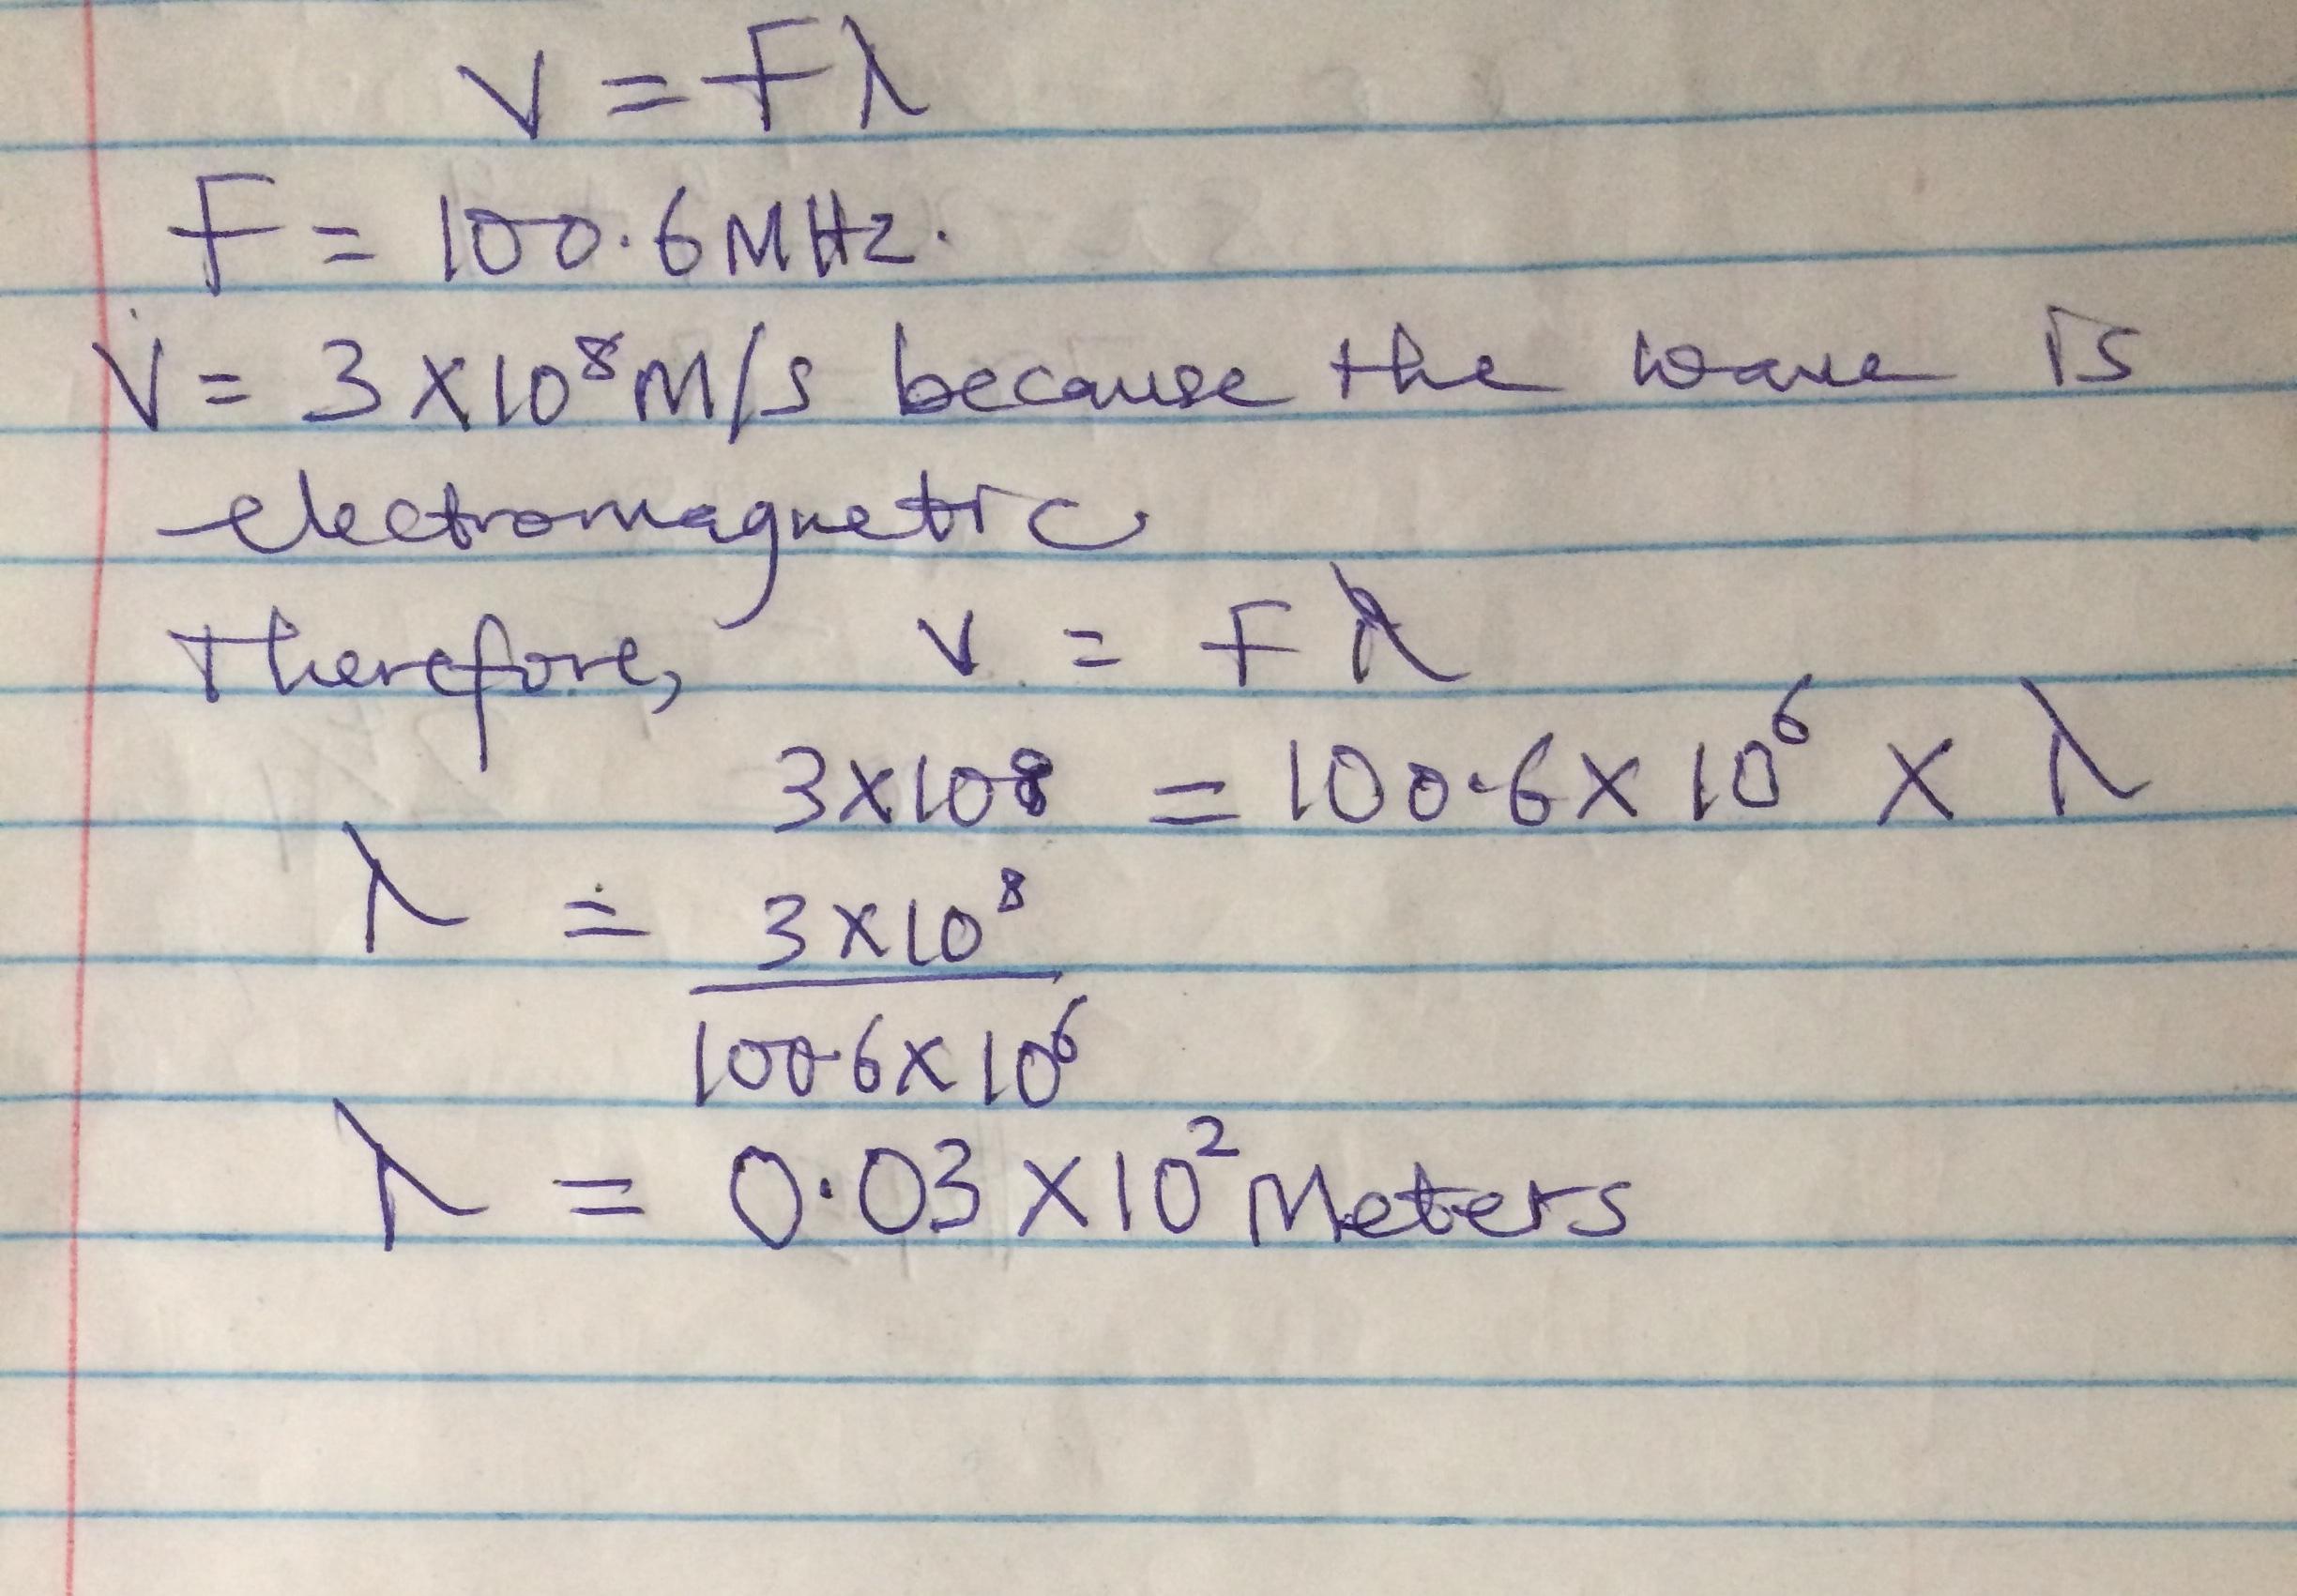 V = Fλ
F = 100.6MHz.
V = 3×10⁸M/s because the wave is
electromagnetic
Therefore, V = Fλ
3×108 = 100.6×10⁶ × λ
λ = 3×10⁸
100.6×10⁶
λ = 0.03×10² Meters